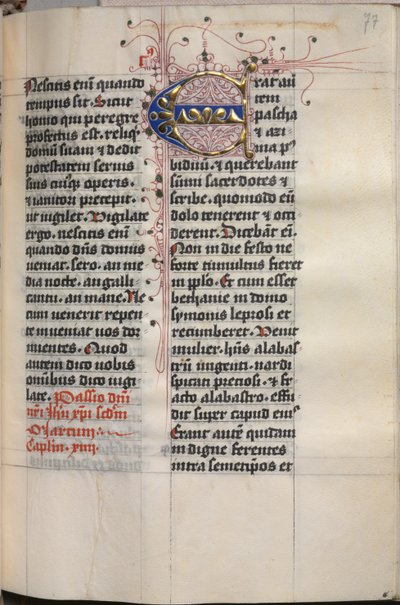 77
Nescitis eni͂ quando
tempus sit. Sicut
homo qui peregre
profectus est. reliq͛
domu͂ suam ⁊ dedit
potestatem servis
suis cuiusq͛ operis.
⁊ ianitori precepit
ut vigilet. Vigilate
ergo. nescitis eni͂
quando dn͂s domus
veniat. sero. an me
dia nocte. an galli
cantu. an mane. Ne
cum venerit repen
te inveniat vos dor
mientes. Quod
autem dico vobis
omnibus dico vigi
late. Passio dn͂i
nr͂i ihu xp͂i scd͂m
Marcum.
Cap͂lm. xiiii.
Erat aut͂
tem
pascha
⁊ azi
ma p͛
biduu͂. ⁊ querebant
su͂mi sacerdotes ⁊
scribe. quomodo eu͂
dolo tenerent ⁊ occi
derent. Dicebant͂ en͂i.
Non in die festo ne
forte tumultus fieret
in pl͂o. Et cum esset
bethanie in domo
symonis leprosi et
recumberet. Venit
mulier. hn͂s alabas
tru͂ ungenti. nardi
spicati preciosi. ⁊ fr
acto alabastro. effu
dit super caput eius͛
Erant aute͂ quidam
indigne ferentes
intra semetip͂os et